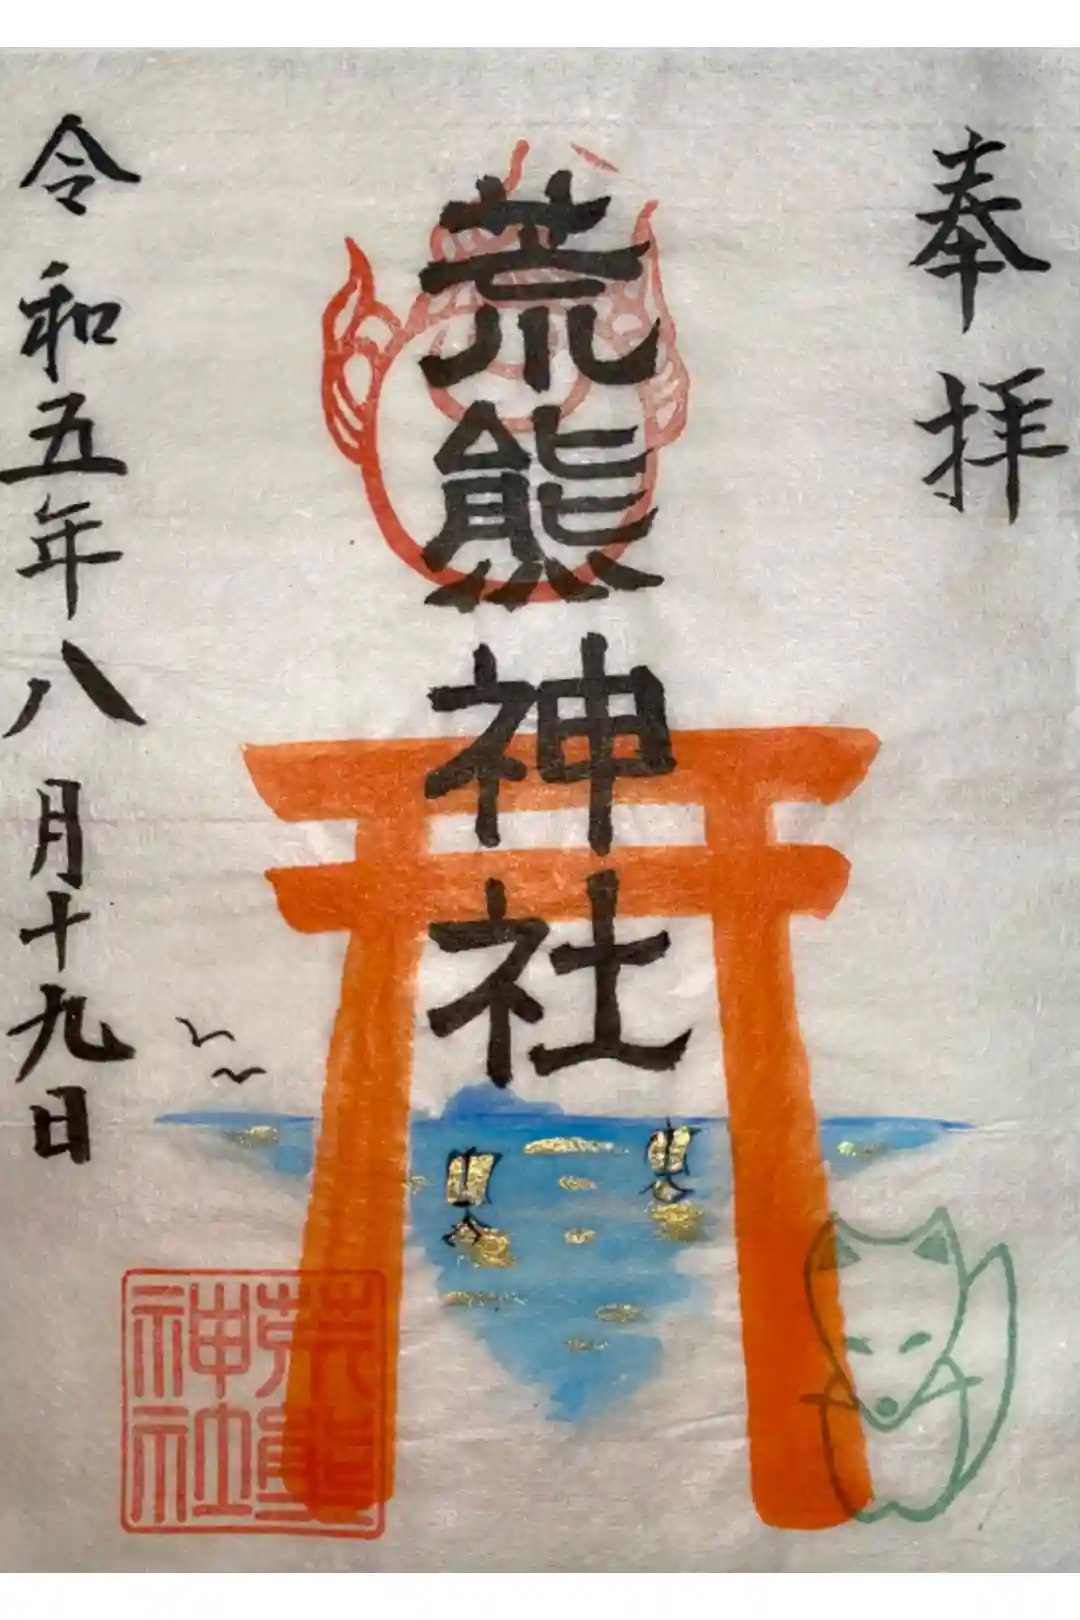 奉拝
荒熊神社
令和五年八月十九日
荒熊
神社